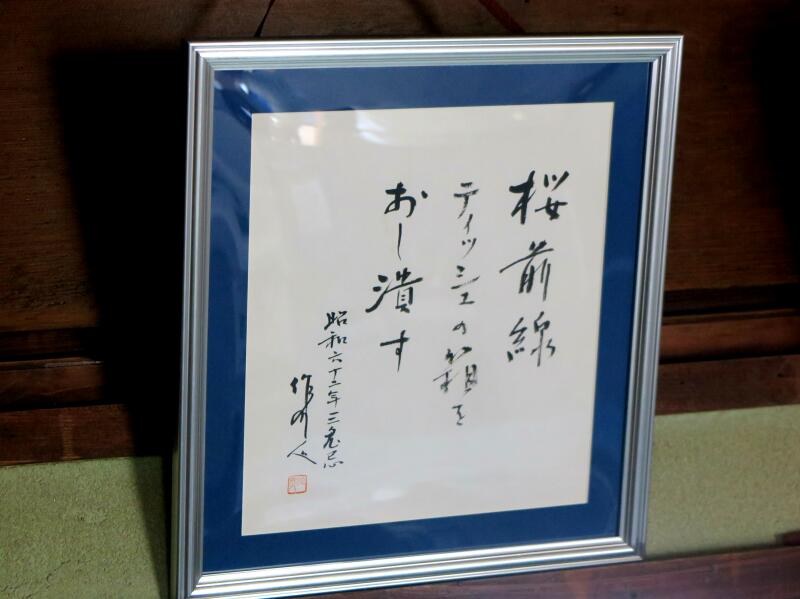 桜前線
ティッシュの箱を
おし潰す
昭和六十二年三鬼忌
作州人